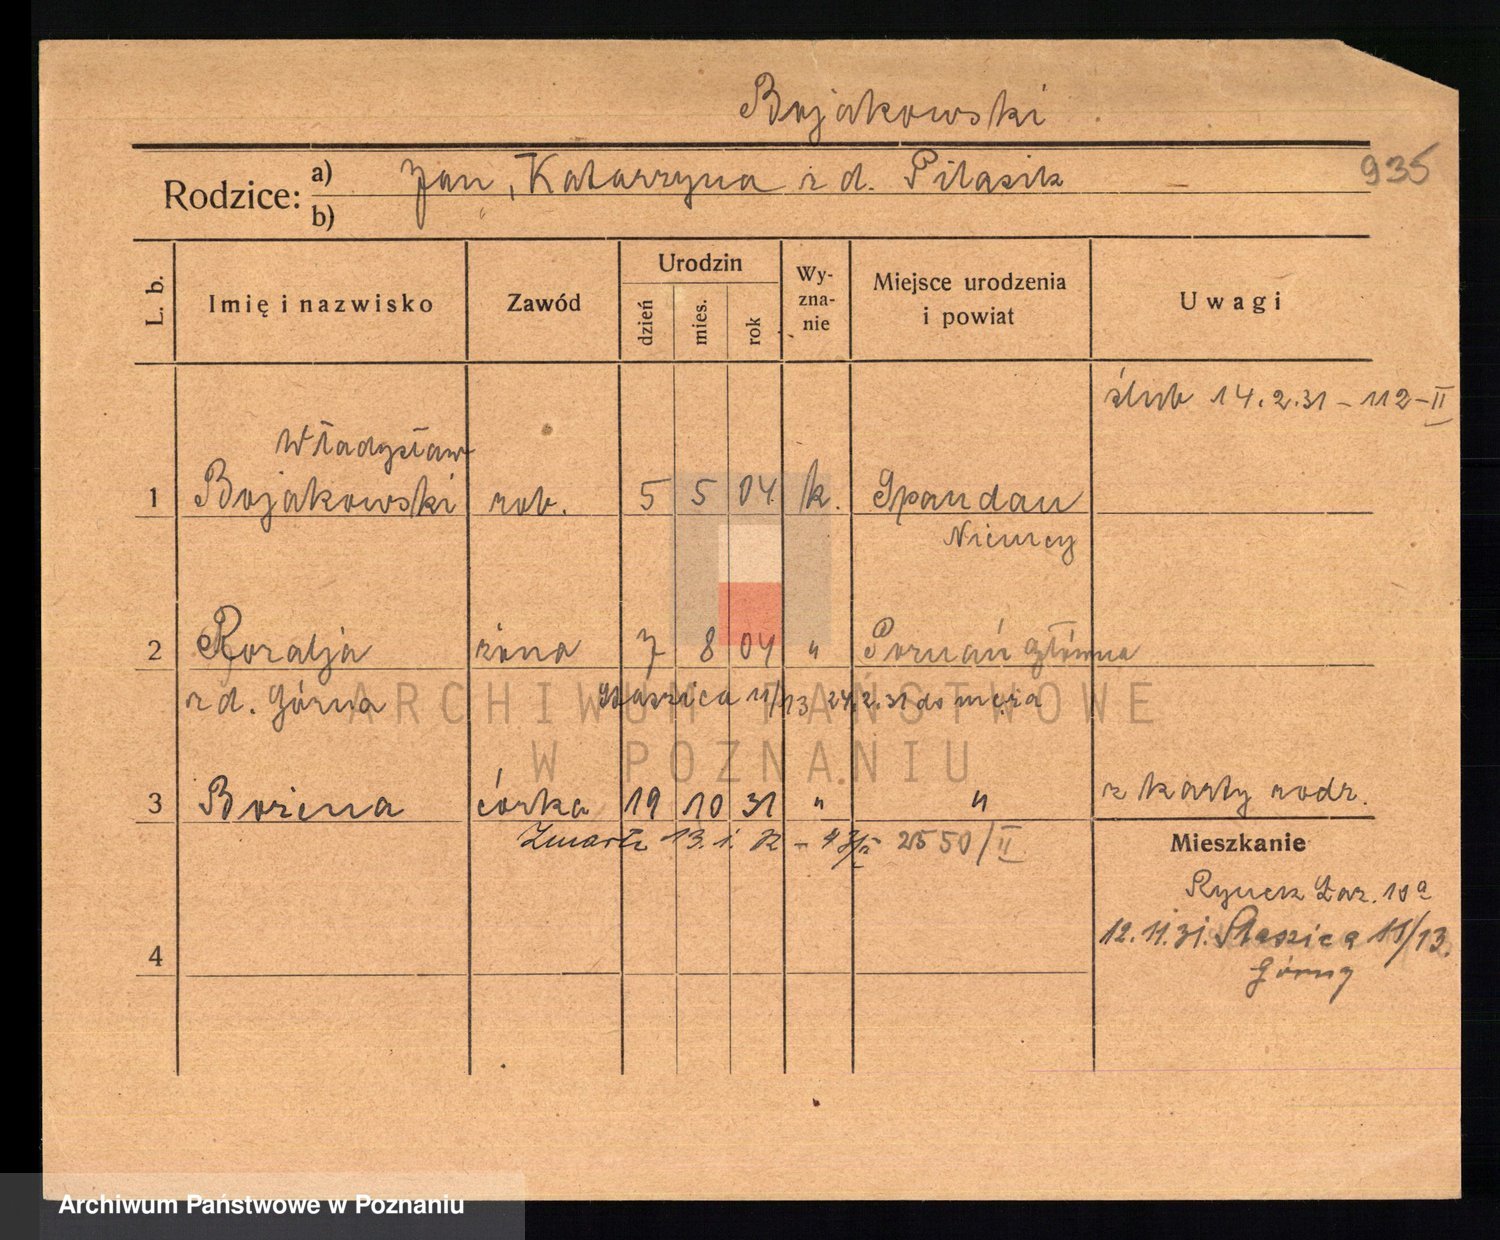 Bojakowski
935
Rodzice: a) Jan, Katarzyna z d. Pilasik
b) "
L. b. Imię i nazwisko Zawód Urodzin dzień mies. rok Wy-zna-nie Miejsce urodzenia i powiat Uwagi
ślub 14.2.31 – 112 – II
Władysław
1 Bojakowski rob. 5 5 04 k. Spandau
Niemcy
2 Rozalja żona 7 8 04 " Poznań Główna
z d. Górna Staszica 11/13 24.2.31 do męża
3 Bożena córka 19 10 31 " " z karty rodz.
Zmarła 13. 1. 2550/II
Mieszkanie
Rynek Łaz. 10a
12.11.31. Staszica 11/13.
4
ARCHIWUM PAŃSTWOWE
W POZNANIU
Archiwum Państwowe w Poznaniu